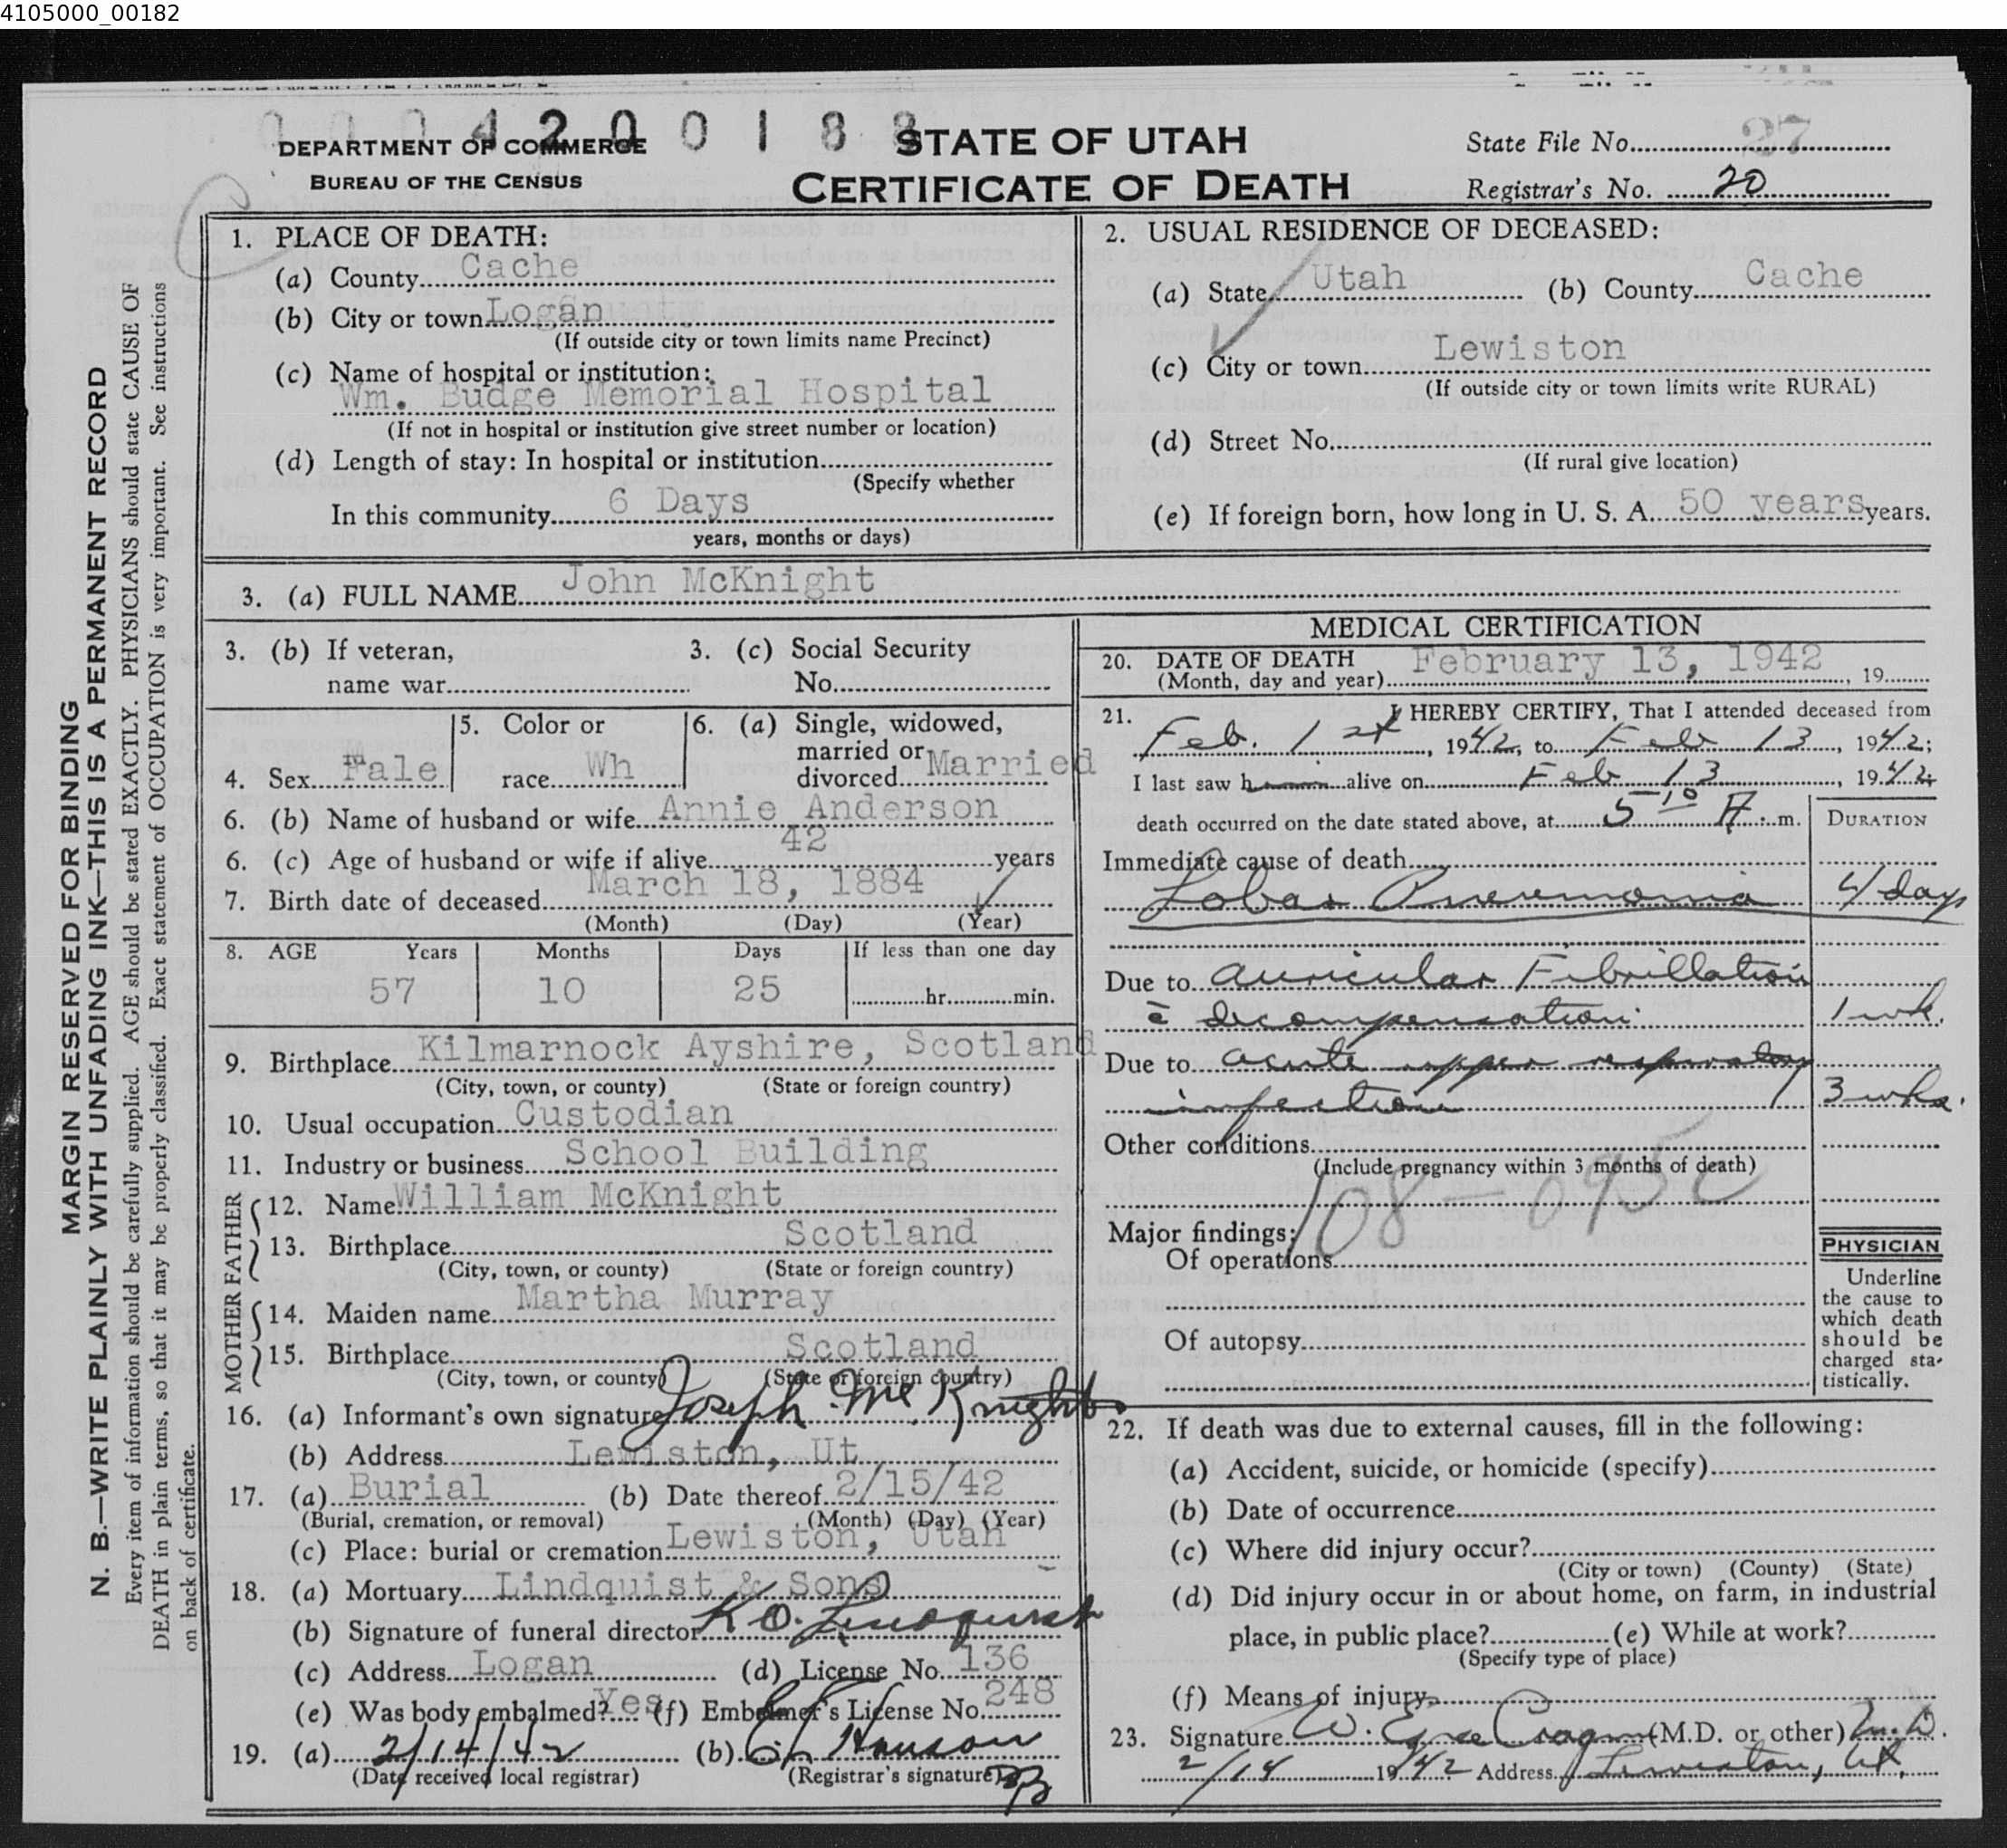 4105000_00182
0004200188
DEPARTMENT OF COMMERCE
BUREAU OF THE CENSUS
STATE OF UTAH
CERTIFICATE OF DEATH
State File No. 27
Registrar's No. 20
MARGIN RESERVED FOR BINDING
N. B.—WRITE PLAINLY WITH UNFADING INK—THIS IS A PERMANENT RECORD
Every item of information should be carefully supplied. AGE should be stated EXACTLY. PHYSICIANS should state CAUSE OF
DEATH in plain terms, so that it may be properly classified. Exact statement of OCCUPATION is very important. See instructions
on back of certificate.
1. PLACE OF DEATH:
(a) County Cache
(b) City or town Logan
(If outside city or town limits name Precinct)
(c) Name of hospital or institution:
Wm. Budge Memorial Hospital
(If not in hospital or institution give street number or location)
(d) Length of stay: In hospital or institution
(Specify whether
In this community 6 Days
years, months or days)
2. USUAL RESIDENCE OF DECEASED:
(a) State Utah (b) County Cache
(c) City or town Lewiston
(If outside city or town limits write RURAL)
(d) Street No.
(If rural give location)
(e) If foreign born, how long in U. S. A. 50 years years.
3. (a) FULL NAME John McKnight
3. (b) If veteran,
name war
3. (c) Social Security
No.
4. Sex Male
5. Color or
race Wh
6. (a) Single, widowed,
married or
divorced Married
6. (b) Name of husband or wife Annie Anderson
6. (c) Age of husband or wife if alive 42 years
7. Birth date of deceased March 18, 1884
(Month) (Day) (Year)
8. AGE Years Months Days If less than one day
57 10 25 hr. min.
9. Birthplace Kilmarnock Ayshire, Scotland
(City, town, or county) (State or foreign country)
10. Usual occupation Custodian
11. Industry or business School Building
FATHER
12. Name William McKnight
13. Birthplace Scotland
(City, town, or county) (State or foreign country)
MOTHER
14. Maiden name Martha Murray
15. Birthplace Scotland
(City, town, or county) (State or foreign country)
16. (a) Informant's own signature Joseph McKnight
(b) Address Lewiston, Ut.
17. (a) Burial (b) Date thereof 2/15/42
(Burial, cremation, or removal) (Month) (Day) (Year)
(c) Place: burial or cremation Lewiston, Utah
18. (a) Mortuary Lindquist & Sons
(b) Signature of funeral director K O. Lindquist
(c) Address Logan (d) License No. 136
(e) Was body embalmed? Yes (f) Embalmer's License No. 248
19. (a) 2/14/42 (b) Hanson
(Date received local registrar) (Registrar's signature)
MEDICAL CERTIFICATION
20. DATE OF DEATH
(Month, day and year) February 13, 1942, 19
21. I HEREBY CERTIFY, That I attended deceased from
Feb. 1st, 1942, to Feb 13, 1942;
I last saw h im alive on Feb 13, 1942;
death occurred on the date stated above, at 5 10 A. m.
DURATION
Immediate cause of death
Lobar Pneumonia 4 days
Due to auricular Fibrillation
c̄ decompensation 1 wk.
Due to acute upper respiratory
infection 3 wks.
Other conditions
(Include pregnancy within 3 months of death)
108-095c
Major findings:
Of operations
Of autopsy
PHYSICIAN
Underline
the cause to
which death
should be
charged sta-
tistically.
22. If death was due to external causes, fill in the following:
(a) Accident, suicide, or homicide (specify)
(b) Date of occurrence
(c) Where did injury occur?
(City or town) (County) (State)
(d) Did injury occur in or about home, on farm, in industrial
place, in public place? (e) While at work?
(Specify type of place)
(f) Means of injury
23. Signature W. Cragun (M.D. or other) M.D.
2/14 1942 Address Lewiston, Ut.